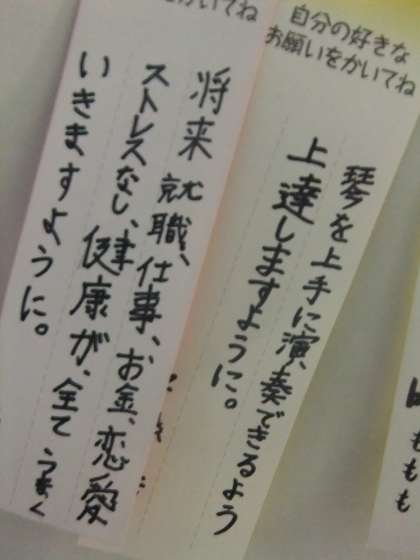 自分の好きな
お願いをかいてね
琴を上手に演奏できるよう
上達しますように。
かいてね
将来就職、仕事、お金、恋愛
ストレスなし、健康が、全てうまく
いきますように。